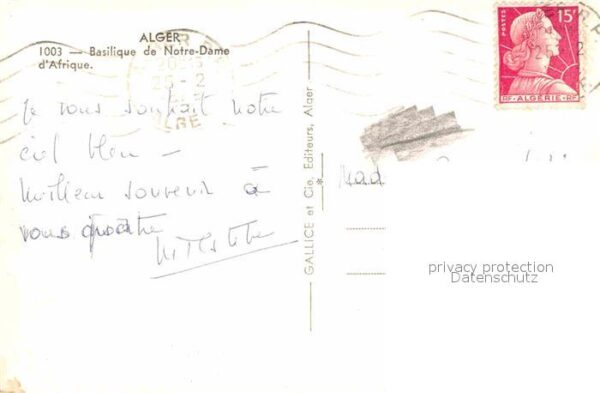 ALGER
1003 — Basilique de Notre-Dame
d'Afrique.
Je vous souhait notre
ciel bleu —
Meilleur souvenir à
vous quatre
GALLICE et Cie, Editeurs, Alger
Mad
POSTES
15F
RF - ALGÉRIE - RF
privacy protection
Datenschutz